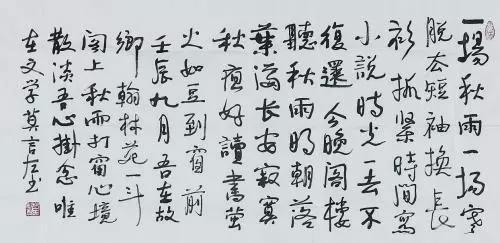 一場秋雨一場寒
脱衣短袖換長
衫抓緊時間寫
小說時光一去不
復還今晚閣樓
聽秋雨明朝落
葉滿長安寂寞
秋好讀書螢
火如豆到窗前
壬辰九月吾在故
鄉翰林苑一斗
閣上秋雨打窗心境
散淡吾心掛念唯
在文学莫言左书